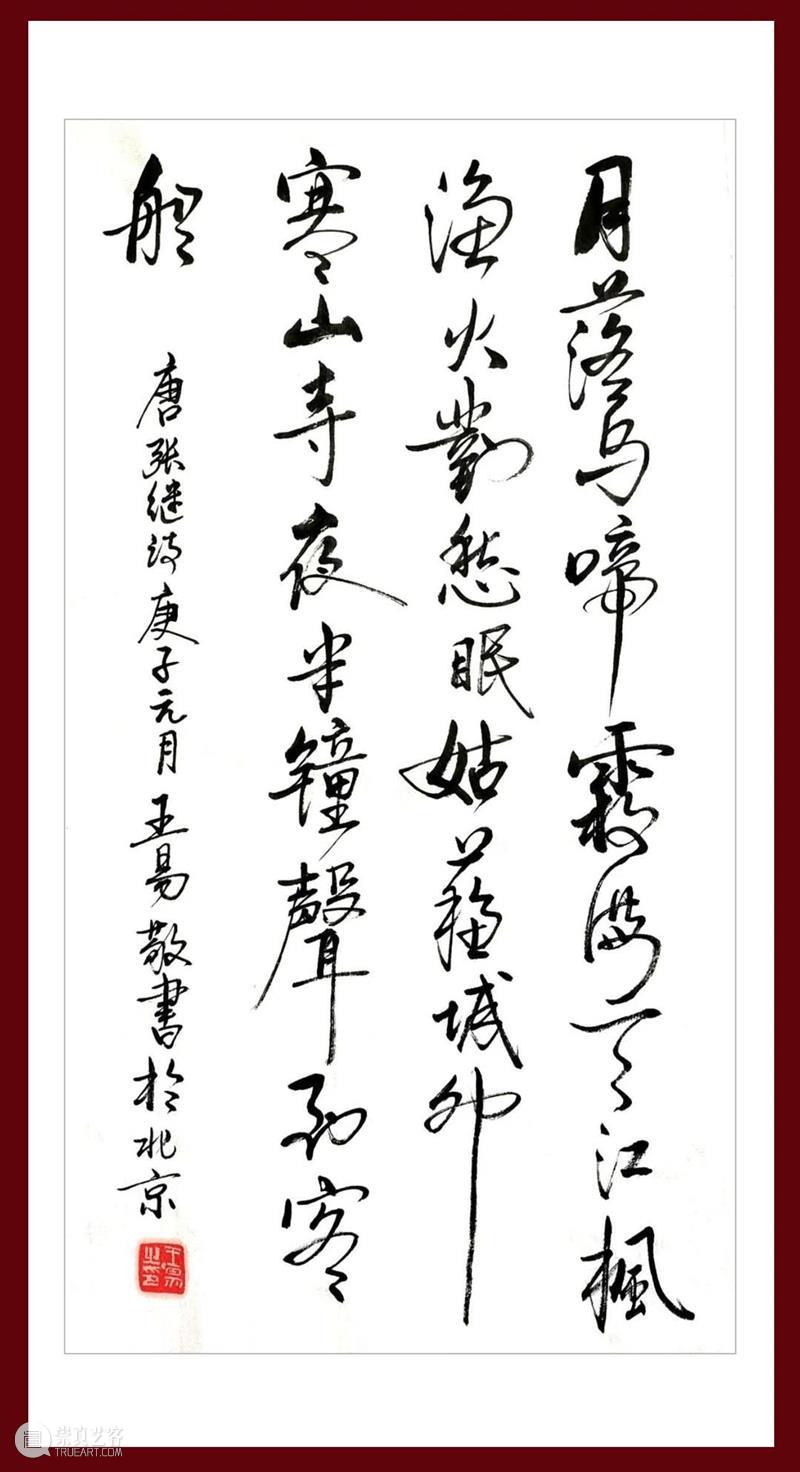 月落烏啼霜满天江楓
渔火對愁眠姑蘇城外
寒山寺夜半鐘聲到客
船
唐张继诗庚子元月王易敬書於北京
崇真艺客
TRUEART.COM